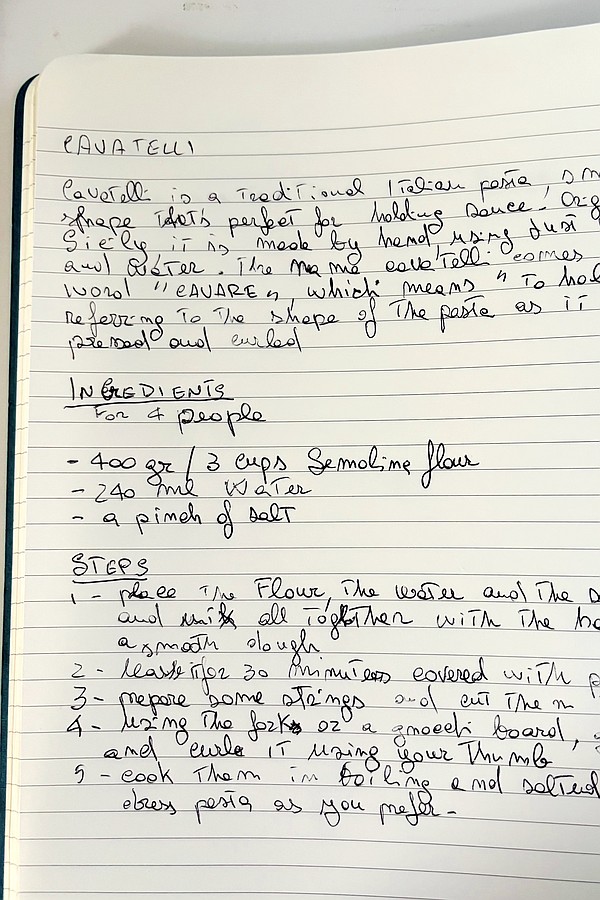 CAVATELLI
Cavatelli is a traditional Italian pasta, sm
shape that's perfect for holding sauce. Orig
Sicily it is made by hand, using Just
and water. The name cavatelli comes
word "CAVARE", which means "To hol
referring To The shape of The pasta as iT
pressed and curled
INGREDIENTS
For 4 people
- 400 gr / 3 cups Semolina flour
- 240 ml Water
- a pinch of salT
STEPS
1 - place The Flour, The water and The s
and mix all Together wiTh The ha
a smooth dough
2 - leave it for 30 minutes covered wiTh p
3 - prepare some strings and cut The m
4 - using The fork or a gnocchi board,
and curl iT using your Thumb
5 - cook Them in boiling and salted
dress pasta as you prefer.